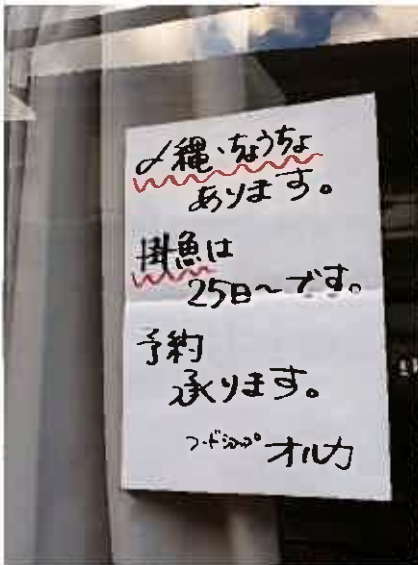 〆縄、ちょうちょ
あります。
掛魚は
25日〜です。
予約
承ります。
フードショップ オルカ